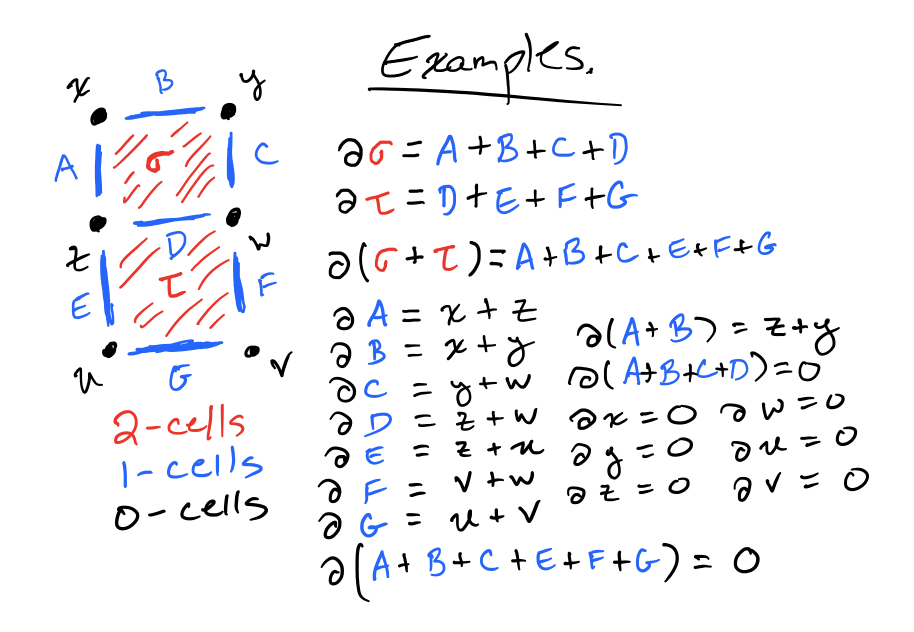 Examples.
x B y
A σ C
z D w
E τ F
u G v
2-cells
1-cells
0-cells
∂σ = A+B+C+D
∂τ = D+E+F+G
∂(σ+τ) = A+B+C+E+F+G
∂A = x+z
∂B = x+y
∂C = y+w
∂D = z+w
∂E = z+u
∂F = v+w
∂G = u+v
∂(A+B) = z+y
∂(A+B+C+D) = 0
∂x = 0 ∂w = 0
∂y = 0 ∂u = 0
∂z = 0 ∂v = 0
∂(A+B+C+E+F+G) = 0